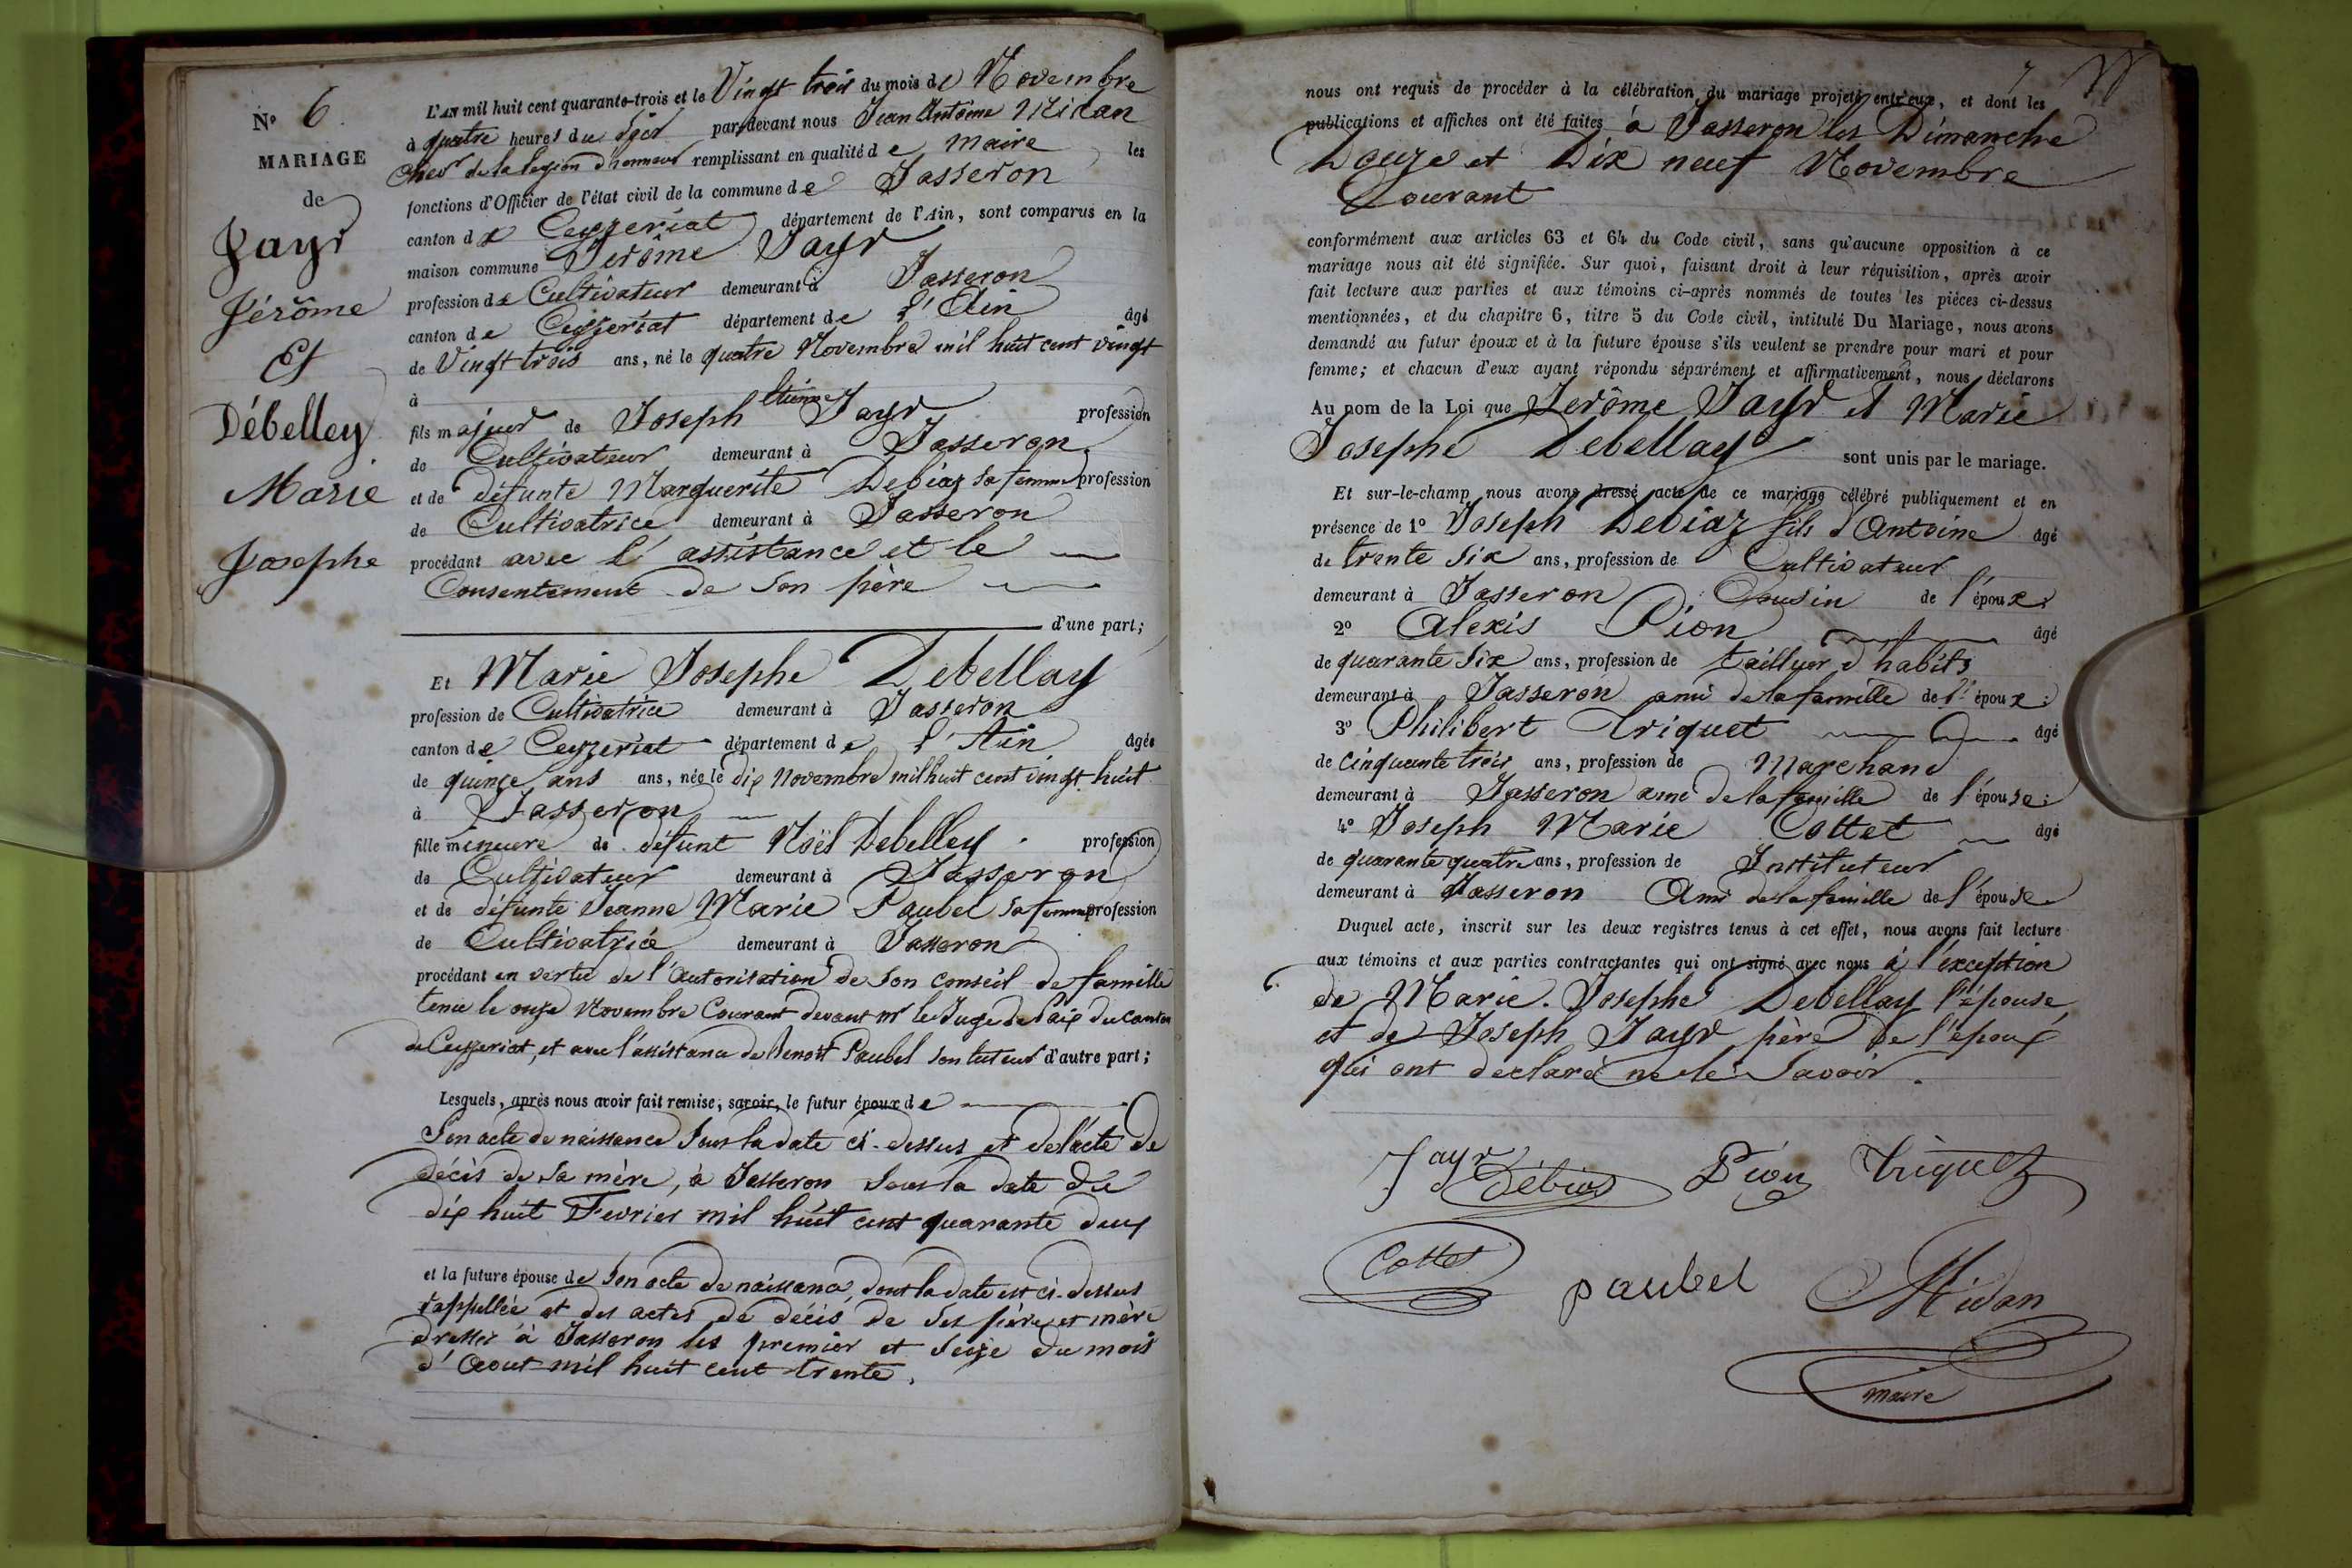 N° 6.
MARIAGE
de
Jayr
Jérôme
Et
Débelley
Marie
Josephe
L'AN mil huit cent quarante-trois et le Vingt trois du mois de Novembre
à quatre heures du Soir pardevant nous Jean Antoine Midan
Cher de la legion d'honneur remplissant en qualité de maire les
fonctions d'Officier de l'état civil de la commune de Jasseron
canton de Ceyzeriat département de l'Ain, sont comparus en la
maison commune Jerôme Jayr
profession de Cultivateur demeurant à Jasseron
canton de Ceyzeriat département de l'Ain âgé
de Vingt trois ans, né le quatre Novembre mil huit cent vingt
à
fils majeur de Joseph Etienne Jayr profession
de Cultivateur demeurant à Jasseron
et de défunte Marguerite Debiaz sa femme profession
de Cultivatrice demeurant à Jasseron
procédant avec l'assistance et le
Consentement de son père
d'une part;
Et Marie Josephe Debellay
profession de Cultivatrice demeurant à Jasseron
canton de Ceyzeriat département de l'Ain âgée
de quinze ans ans, née le dix Novembre mil huit cent vingt huit
à Jasseron
fille mineure de défunt Noël Debelley profession
de Cultivateur demeurant à Jasseron
et de défunte Jeanne Marie Paubel sa femme profession
de Cultivatrice demeurant à Jasseron
procédant en vertu de l'autorisation de son conseil de famille
tenu le onze Novembre Courant devant mr le Juge de Paix du canton
de Ceyzeriat, et avec l'assistance de Benoit Paubel son tuteur d'autre part;
Lesquels, après nous avoir fait remise, savoir, le futur époux de
Son acte de naissance sous la date ci-dessus et de l'acte de
décès de sa mère, à Jasseron sous la date du
dix huit Fevrier mil huit cent quarante deux
et la future épouse de Son acte de naissance, dont la date est ci-dessus
rappellée et des actes de décès de ses père et mère
dressés à Jasseron les premier et seize du mois
d'Aout mil huit cent trente.
7
nous ont requis de procéder à la célébration du mariage projeté entr'eux, et dont les
publications et affiches ont été faites à Jasseron les Dimanche
Douze et Dix neuf Novembre
Courant
conformément aux articles 63 et 64 du Code civil, sans qu'aucune opposition à ce
mariage nous ait été signifiée. Sur quoi, faisant droit à leur réquisition, après avoir
fait lecture aux parties et aux témoins ci-après nommés de toutes les pièces ci-dessus
mentionnées, et du chapitre 6, titre 5 du Code civil, intitulé Du Mariage, nous avons
demandé au futur époux et à la future épouse s'ils veulent se prendre pour mari et pour
femme; et chacun d'eux ayant répondu séparément et affirmativement, nous déclarons
Au nom de la Loi que Jerôme Jayr et Marie
Josephe Debellay sont unis par le mariage.
Et sur-le-champ nous avons dressé acte de ce mariage célébré publiquement et en
présence de 1° Joseph Debiaz fils d'Antoine âgé
de trente six ans, profession de Cultivateur
demeurant à Jasseron Cousin de l'époux;
2° Alexis Pion âgé
de quarante six ans, profession de tailluer d'habits
demeurant à Jasseron ami de la famille de l'époux;
3° Philibert Triquet âgé
de cinquante trois ans, profession de Marchand
demeurant à Jasseron ami de la famille de l'épouse;
4° Joseph Marie Cottet âgé
de quarante quatre ans, profession de Instituteur
demeurant à Jasseron Ami de la famille de l'épouse
Duquel acte, inscrit sur les deux registres tenus à cet effet, nous avons fait lecture
aux témoins et aux parties contractantes qui ont signé avec nous à l'exception
de Marie Josephe Debellay l'épouse,
et de Joseph Jayr père de l'époux
qui ont declaré ne le savoir.
Jayr Débias Pion triquet
Cottet paubel Midan
maire